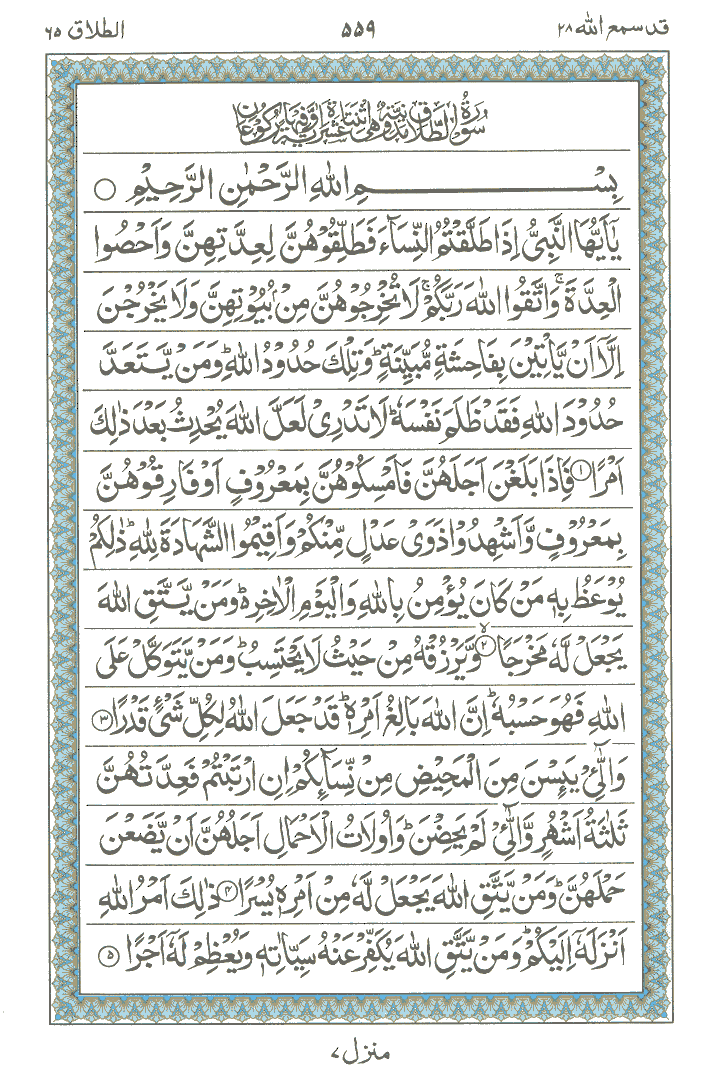 قد سمع الله ٢٨ ٥٥٩ الطلاق ٦٥
سُوْرَةُ الطَّلَاقِ مَدَنِيَّةٌ وَّهِيَ اثْنَتَا عَشْرَةَ اٰيَةً وَّفِيْهَا رُكُوْعَانِ
بِسْمِ اللهِ الرَّحْمٰنِ الرَّحِيْمِ ○
يٰۤاَيُّهَا النَّبِيُّ اِذَا طَلَّقْتُمُ النِّسَآءَ فَطَلِّقُوْهُنَّ لِعِدَّتِهِنَّ وَاَحْصُوا
الْعِدَّةَ ۚ وَاتَّقُوا اللهَ رَبَّكُمْ ۚ لَا تُخْرِجُوْهُنَّ مِنْۢ بُيُوْتِهِنَّ وَلَا يَخْرُجْنَ
اِلَّاۤ اَنْ يَّاْتِيْنَ بِفَاحِشَةٍ مُّبَيِّنَةٍ ؕ وَتِلْكَ حُدُوْدُ اللهِ ؕ وَمَنْ يَّتَعَدَّ
حُدُوْدَ اللهِ فَقَدْ ظَلَمَ نَفْسَهٗ ؕ لَا تَدْرِيْ لَعَلَّ اللهَ يُحْدِثُ بَعْدَ ذٰلِكَ
اَمْرًا ۝١ فَاِذَا بَلَغْنَ اَجَلَهُنَّ فَاَمْسِكُوْهُنَّ بِمَعْرُوْفٍ اَوْ فَارِقُوْهُنَّ
بِمَعْرُوْفٍ وَّاَشْهِدُوْا ذَوَيْ عَدْلٍ مِّنْكُمْ وَاَقِيْمُوا الشَّهَادَةَ لِلّٰهِ ؕ ذٰلِكُمْ
يُوْعَظُ بِهٖ مَنْ كَانَ يُؤْمِنُ بِاللهِ وَالْيَوْمِ الْاٰخِرِ ؕ۬ وَمَنْ يَّتَّقِ اللهَ
يَجْعَلْ لَّهٗ مَخْرَجًا ۝٢ۙ وَّيَرْزُقْهُ مِنْ حَيْثُ لَا يَحْتَسِبُ ؕ وَمَنْ يَّتَوَكَّلْ عَلَى
اللهِ فَهُوَ حَسْبُهٗ ؕ اِنَّ اللهَ بَالِغُ اَمْرِهٖ ؕ قَدْ جَعَلَ اللهُ لِكُلِّ شَيْءٍ قَدْرًا ۝٣
وَالّٰٓـِٔيْ يَئِسْنَ مِنَ الْمَحِيْضِ مِنْ نِّسَآئِكُمْ اِنِ ارْتَبْتُمْ فَعِدَّتُهُنَّ
ثَلٰثَةُ اَشْهُرٍ وَّالّٰٓـِٔيْ لَمْ يَحِضْنَ ؕ وَاُولَاتُ الْاَحْمَالِ اَجَلُهُنَّ اَنْ يَّضَعْنَ
حَمْلَهُنَّ ؕ وَمَنْ يَّتَّقِ اللهَ يَجْعَلْ لَّهٗ مِنْ اَمْرِهٖ يُسْرًا ۝٤ ذٰلِكَ اَمْرُ اللهِ
اَنْزَلَهٗۤ اِلَيْكُمْ ؕ وَمَنْ يَّتَّقِ اللهَ يُكَفِّرْ عَنْهُ سَيِّاٰتِهٖ وَيُعْظِمْ لَهٗۤ اَجْرًا ۝٥
منزل ٧